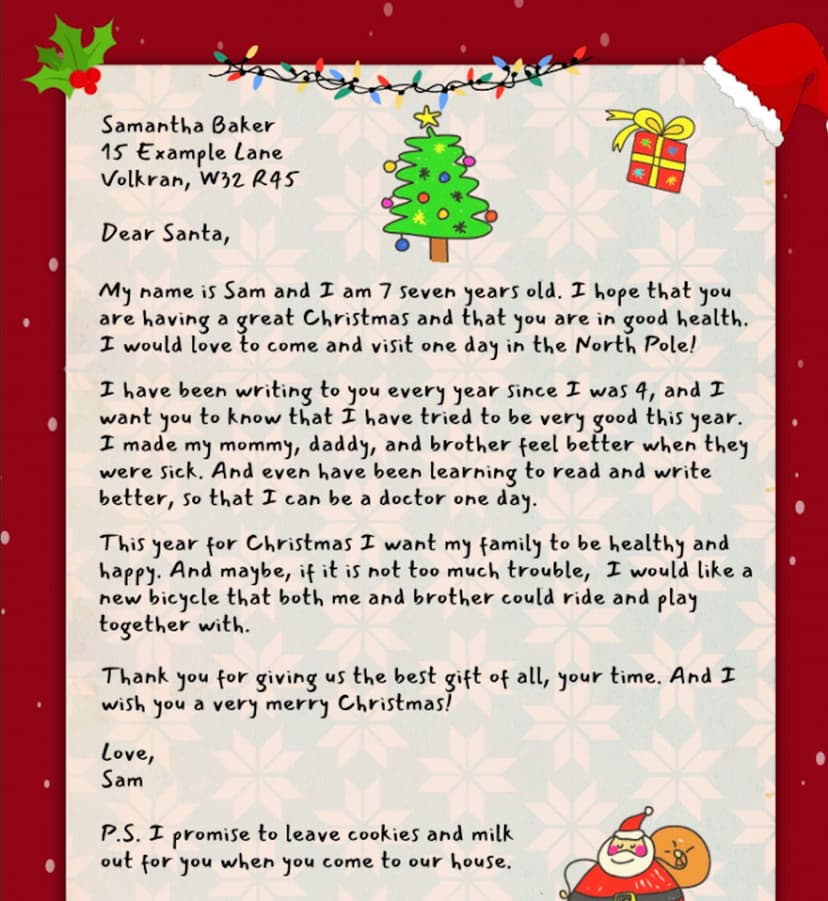 Samantha Baker
15 Example Lane
Volkran, W32 R45
Dear Santa,
My name is Sam and I am 7 seven years old. I hope that you
are having a great Christmas and that you are in good health.
I would love to come and visit one day in the North Pole!
I have been writing to you every year since I was 4, and I
want you to know that I have tried to be very good this year.
I made my mommy, daddy, and brother feel better when they
were sick. And even have been learning to read and write
better, so that I can be a doctor one day.
This year for Christmas I want my family to be healthy and
happy. And maybe, if it is not too much trouble, I would like a
new bicycle that both me and brother could ride and play
together with.
Thank you for giving us the best gift of all, your time. And I
wish you a very merry Christmas!
Love,
Sam
P.S. I promise to leave cookies and milk
out for you when you come to our house.